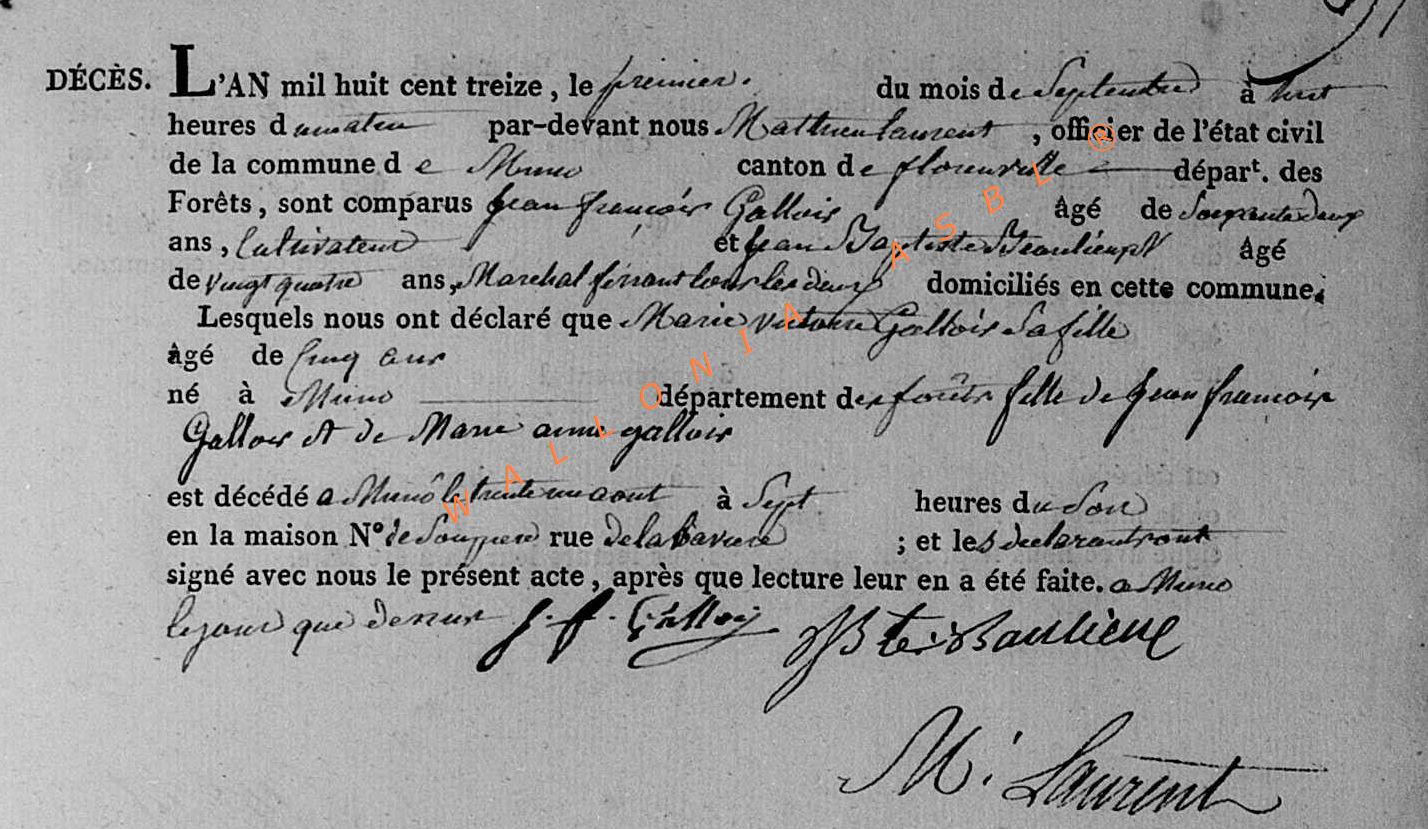 DÉCÈS. L'AN mil huit cent treize, le premier du mois de Septembre à huit
heures du matin par-devant nous Mathieu laurent, officier de l'état civil
de la commune de Muno canton de florenville départ. des
Forêts, sont comparus Jean francois Gallois âgé de Soixante deux
ans, Cultivateur et Jean Baptiste Beaulieux âgé
de vingt quatre ans, Marechal ferrant tous les deux domiciliés en cette commune.
Lesquels nous ont déclaré que Marie victoire Gallois Sa fille
âgé de Cinq ans
né à Muno département des forêts fille de Jean francois
Gallois et de Marie anne gallois
est décédé a Muno le trente un aout à Sept heures du Soir
en la maison N° de rue de la ; et les declarant ont
signé avec nous le présent acte, après que lecture leur en a été faite. a Muno
le jour que dessus J. f. Gallois JBte Baulieux
M. Laurent
WALLONIA ASBL ®